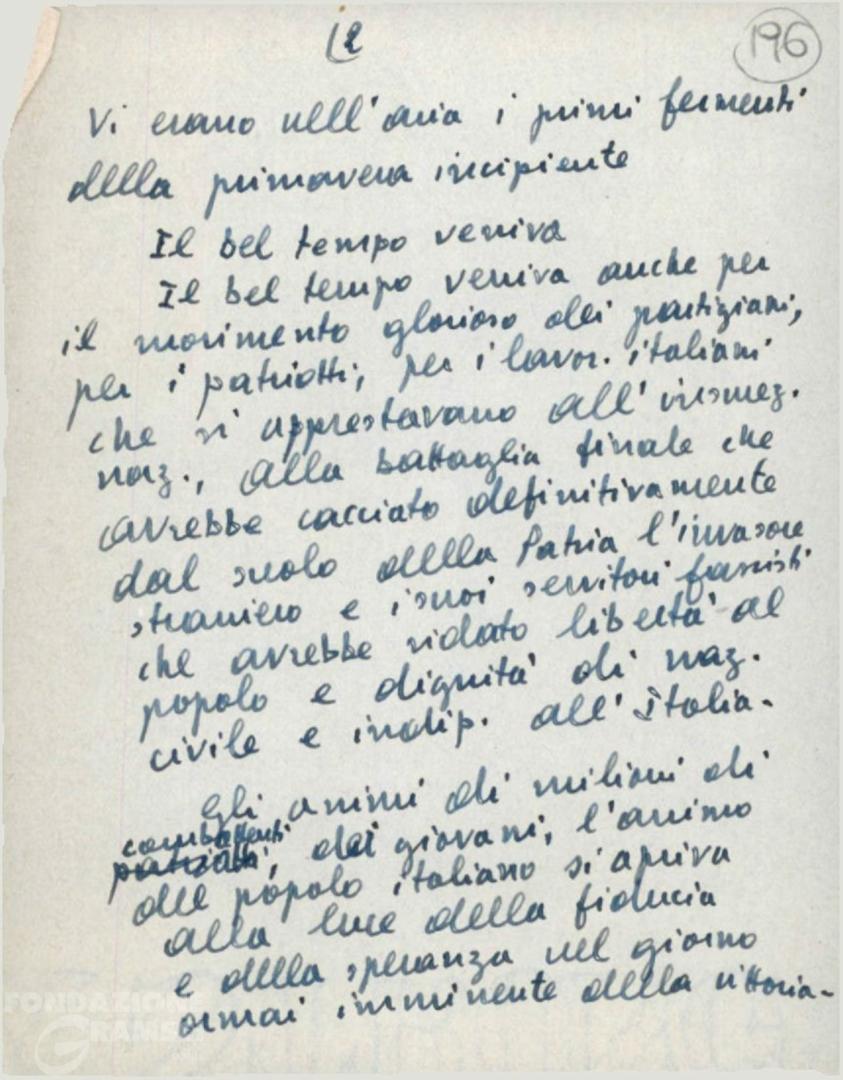 (2
196
Vi erano nell'aria i primi fermenti
della primavera incipiente
Il bel tempo veniva
Il bel tempo veniva anche per
il movimento glorioso dei partigiani,
per i patriotti, per i lavor. italiani
che si apprestavano all'insurrez.
naz., alla battaglia finale che
avrebbe cacciato definitivamente
dal suolo della Patria l'invasore
straniero e i suoi servitori fascisti
che avrebbe ridato libertà al
popolo e dignità di naz.
civile e indip. all'Italia.
Gli animi di milioni di
combattenti
patriotti, dei giovani, l'animo
del popolo italiano si apriva
alla luce della fiducia
e della speranza nel giorno
ormai imminente della vittoria.
FONDAZIONE
GRAMSCI